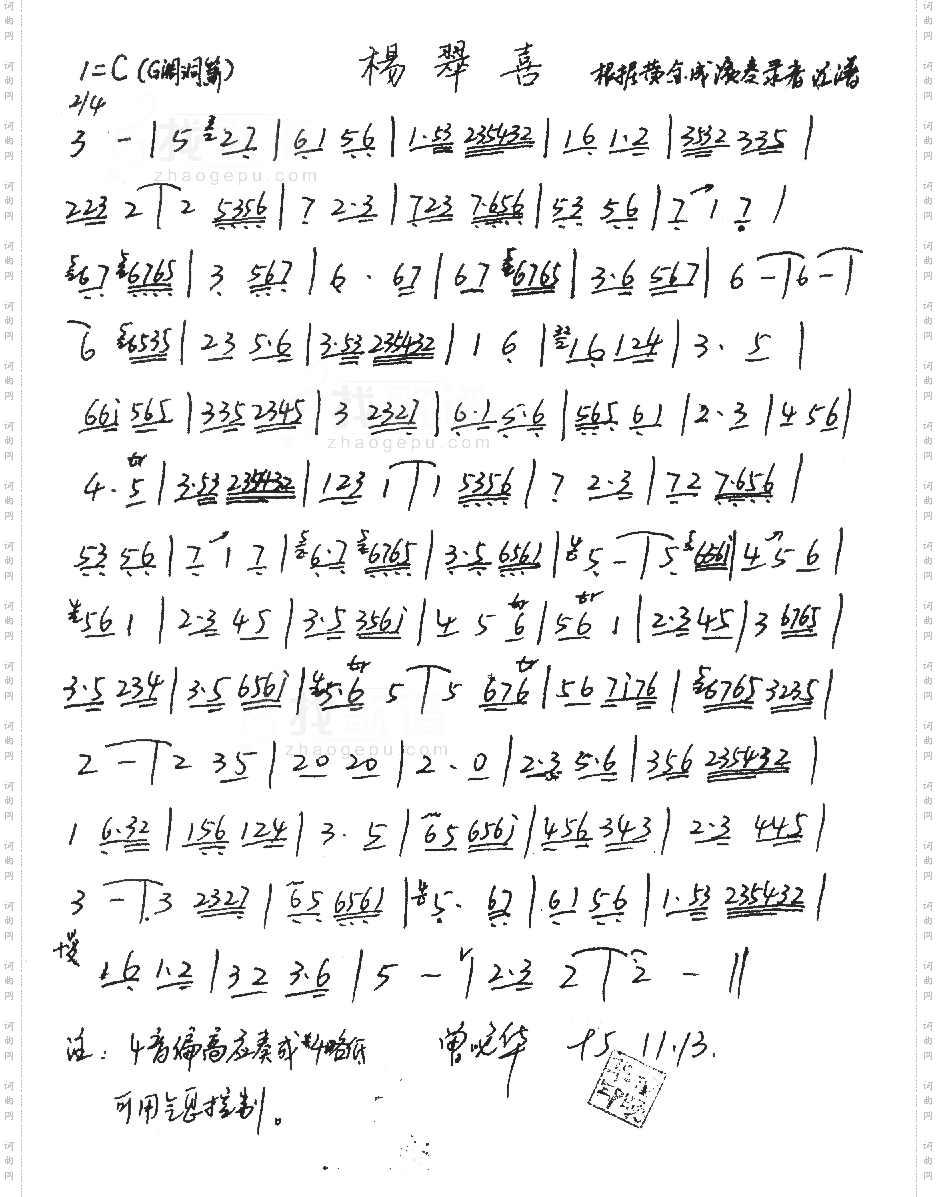 1=C (G调洞箫) 楊翠喜 根据黄金成演奏录音记谱
2/4
3 - | 5 27 | 61 56 | 1·53 235432 | 16 1·2 | 3532 335 |
223 2 | 2 5356 | 7 2·3 | 723 7·656 | 53 56 | 7 1 7 |
67 6765 | 3 567 | 6 · 67 | 67 6765 | 3·6 567 | 6 - | 6 - |
6 6535 | 23 5·6 | 3·53 235432 | 1 6 | 16 124 | 3 · 5 |
66i 565 | 335 2345 | 3 2327 | 6·1 5·6 | 565 61 | 2·3 | 4 56 |
4 · 5 tr | 3·53 235432 | 123 1 | 1 5356 | 7 2·3 | 72 7·656 |
53 56 | 7 1 7 | 6·7 6765 | 3·5 6561 | 5 - | 5 656i | 4 5 6 |
56 1 | 2·3 45 | 3·5 356i | 4 5 6 tr | 56 tr 1 | 2·3 45 | 3 6765 |
3·5 234 | 3·5 656i | 5·6 tr 5 | 5 676 tr | 56 7i76 | 6765 3235 |
2 - | 2 35 | 20 20 | 2 · 0 | 2·3 5·6 | 356 235432 |
1 6·32 | 156 124 | 3 · 5 | 65 656i | 456 343 | 2·3 445 |
3 - | 3 2327 | 65 6561 | 5 · 67 | 61 56 | 1·53 235432 |
慢 16 1·2 | 32 3·6 | 5 - | 2·3 2 | 2 - ‖
注：4音偏高应奏成#4略低 曾晓华 15.11.13.
可用气息控制。
zhaogepu.com
zhaogepu.com
zhaogepu.com
词曲网